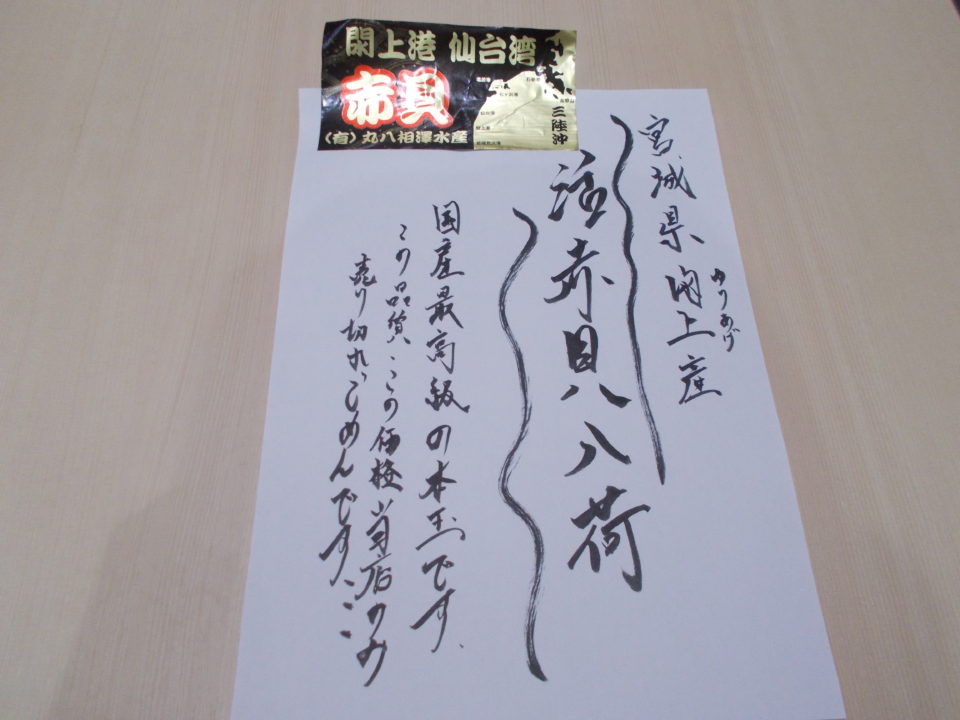 閖上港 仙台湾
赤貝
(有) 丸八相澤水産
三陸沖
宮城県閖上産
ゆりあげ
活赤貝入荷
国産最高級の本玉です。
この品質、この価格当店のみ
売り切れ、ごめんです、、